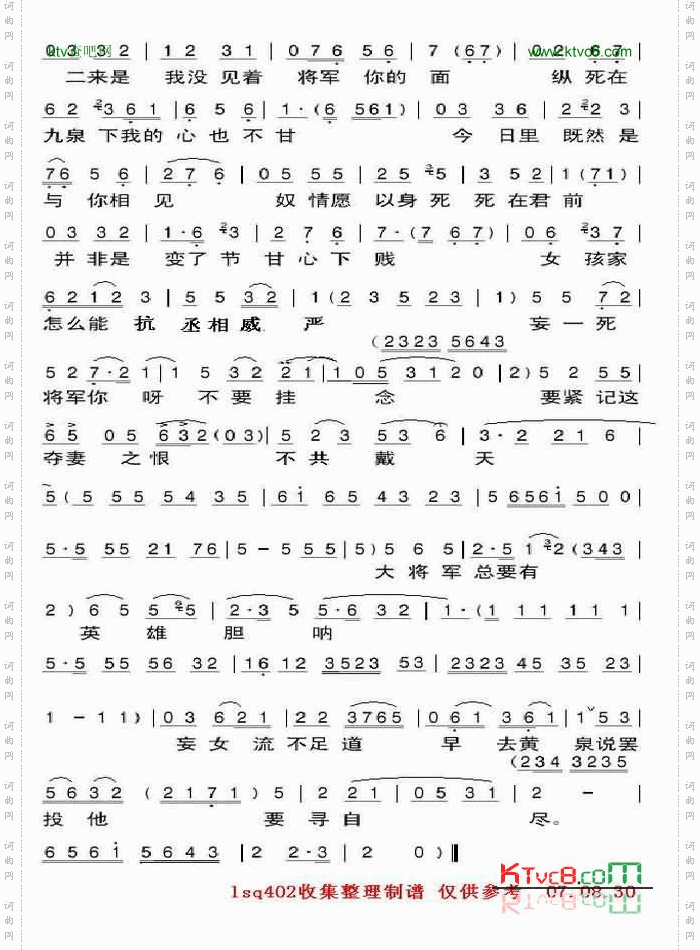 ktv查吧网 www.ktvc8.com
0 3 3 2 | 1 2 3 1 | 0 7 6 5 6 | 7 ( 6 7 ) | 0 2 6 7 |
二来是 我没见着 将军你的面 纵死在
6 2 2 3 6 1 | 6 5 6 | 1 · ( 6 5 6 1 ) | 0 3 3 6 | 2 2 3 |
九泉下我的心也不甘 今日里既然是
7 6 5 6 | 2 7 6 | 0 5 5 5 | 2 5 5 | 3 5 2 | 1 ( 7 1 ) |
与你相见 奴情愿以身死死在君前
0 3 3 2 | 1 · 6 3 | 2 7 6 | 7 · ( 7 6 7 ) | 0 6 3 7 |
并非是变了节甘心下贱 女孩家
6 2 1 2 3 | 5 5 3 2 | 1 ( 2 3 5 2 3 | 1 ) 5 5 7 2 |
怎么能抗丞相威严 妄一死
( 2 3 2 3 5 6 4 3
5 2 7 · 2 1 | 1 5 3 2 2 1 | 1 0 5 3 1 2 0 | 2 ) 5 2 5 5 |
将军你呀不要挂念 要紧记这
6 5 0 5 6 3 2 ( 0 3 ) | 5 2 3 5 3 6 | 3 · 2 2 1 6 |
夺妻之恨 不共戴天
5 ( 5 5 5 4 3 5 | 6 1 6 5 4 3 2 3 | 5 6 5 6 1 5 0 0 |
5 · 5 5 5 2 1 7 6 | 5 – 5 5 5 | 5 ) 5 6 5 | 2 · 5 1 2 ( 3 4 3 |
大将军总要有
2 ) 6 5 5 5 | 2 · 3 5 5 · 6 3 2 | 1 · ( 1 1 1 1 1 |
英雄胆呐
5 · 5 5 5 5 6 3 2 | 1 6 1 2 3 5 2 3 5 3 | 2 3 2 3 4 5 3 5 2 3 |
1 – 1 1 ) | 0 3 6 2 1 | 2 2 3 7 6 5 | 0 6 1 3 6 1 | 1 5 3 |
妄女流不足道 早去黄泉说罢
( 2 3 4 3 2 3 5
5 6 3 2 ( 2 1 7 1 ) 5 | 2 2 1 | 0 5 3 1 | 2 – |
投他 要寻自尽。
6 5 6 1 5 6 4 3 | 2 2 · 3 | 2 0 ) ‖
KTvc8.com
lsq402收集整理制谱 仅供参考 07.08.30